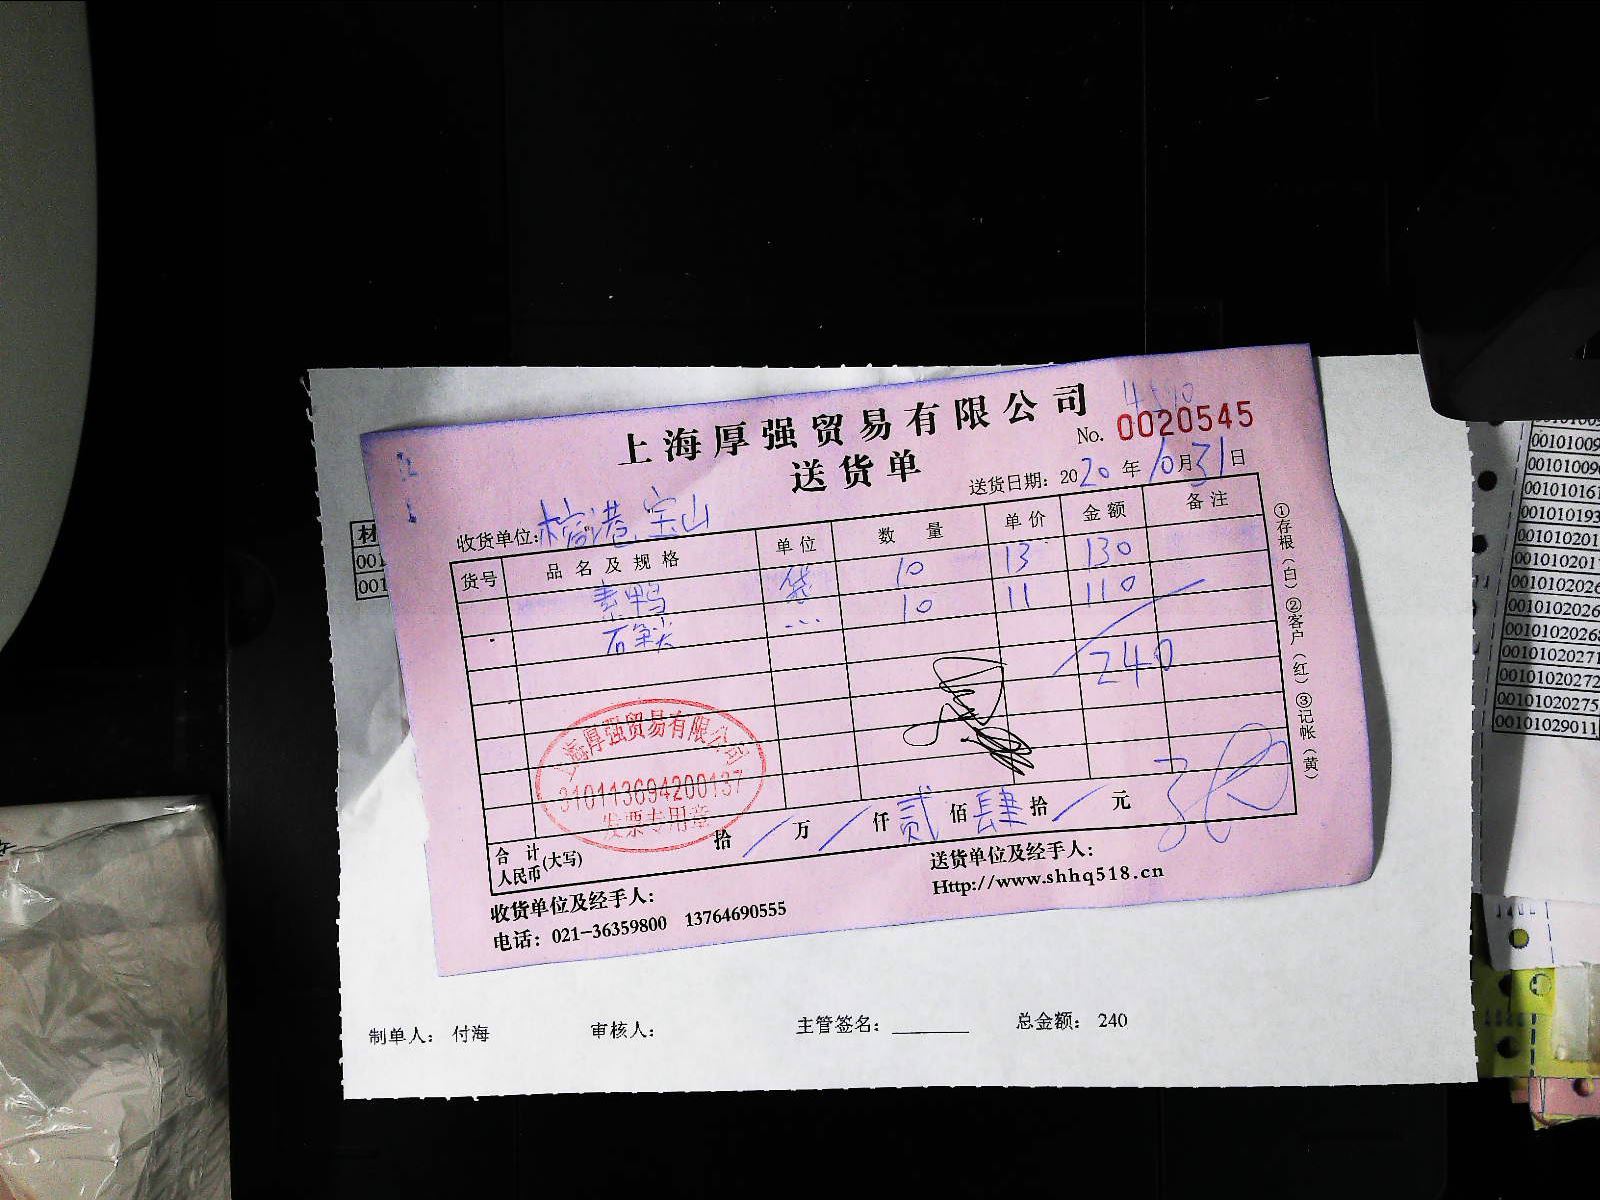 上海厚强贸易有限公司
No. 0020545
送货单
送货日期: 2020年10月31日
收货单位: 港 宝山
货号 品名及规格 单位 数量 单价 金额 备注
素鸭 袋 10 13 130
石 10 11 110
240
上海厚强贸易有限公司
310113694200137
发票专用章
合计人民币(大写) 拾 / 万 / 仟 贰 佰 肆 拾 / 元
收货单位及经手人:
送货单位及经手人:
电话: 021-36359800 13764690555
Http://www.shhq518.cn
①存根(白)②客户(红)③记帐(黄)
制单人: 付海 审核人: 主管签名: 总金额: 240
材
001
001
00101009
00101009
00101016
00101019
00101020
00101020
001010202
001010202
001010202
0010102027
0010102027
0010102027
00101029011